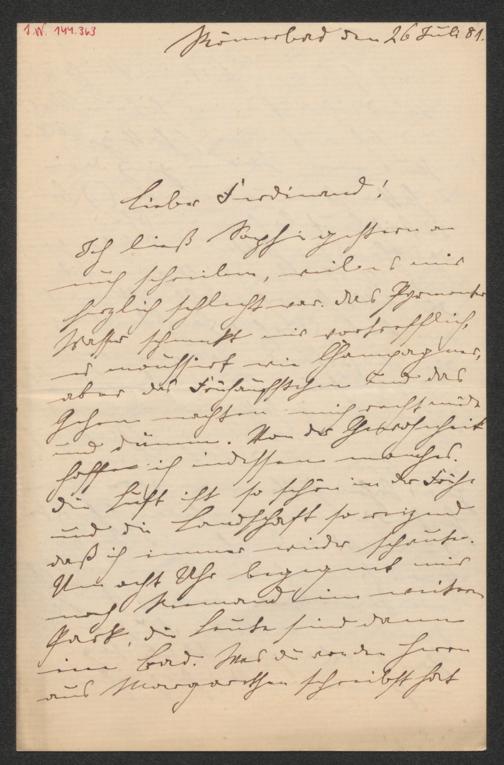 I.N. 144.363
Römerbad den 26 Juli 81.
Lieber Ferdinand!
Ich ließ Sophie gestern an
euch schreiben, weil es mir
herzlich schlecht war. das Pyrmonter
Wasser schmekt mir vortrefflich,
es moussirt wie Champagner,
aber das Frühaufstehen und das
Gehen machten mich recht müde
und dumm. Von der Gewohnheit
hoffe ich indessen manches.
die Luft ist so schön in der Früh
und die Landschaft so reizend
daß ich immer wieder schaute.
Um acht Uhr begegnet mir
noch Niemand im weiten
Park, die Leute sind dann
im Bad. Was du von den Herrn
aus Margarethen schreibst hat